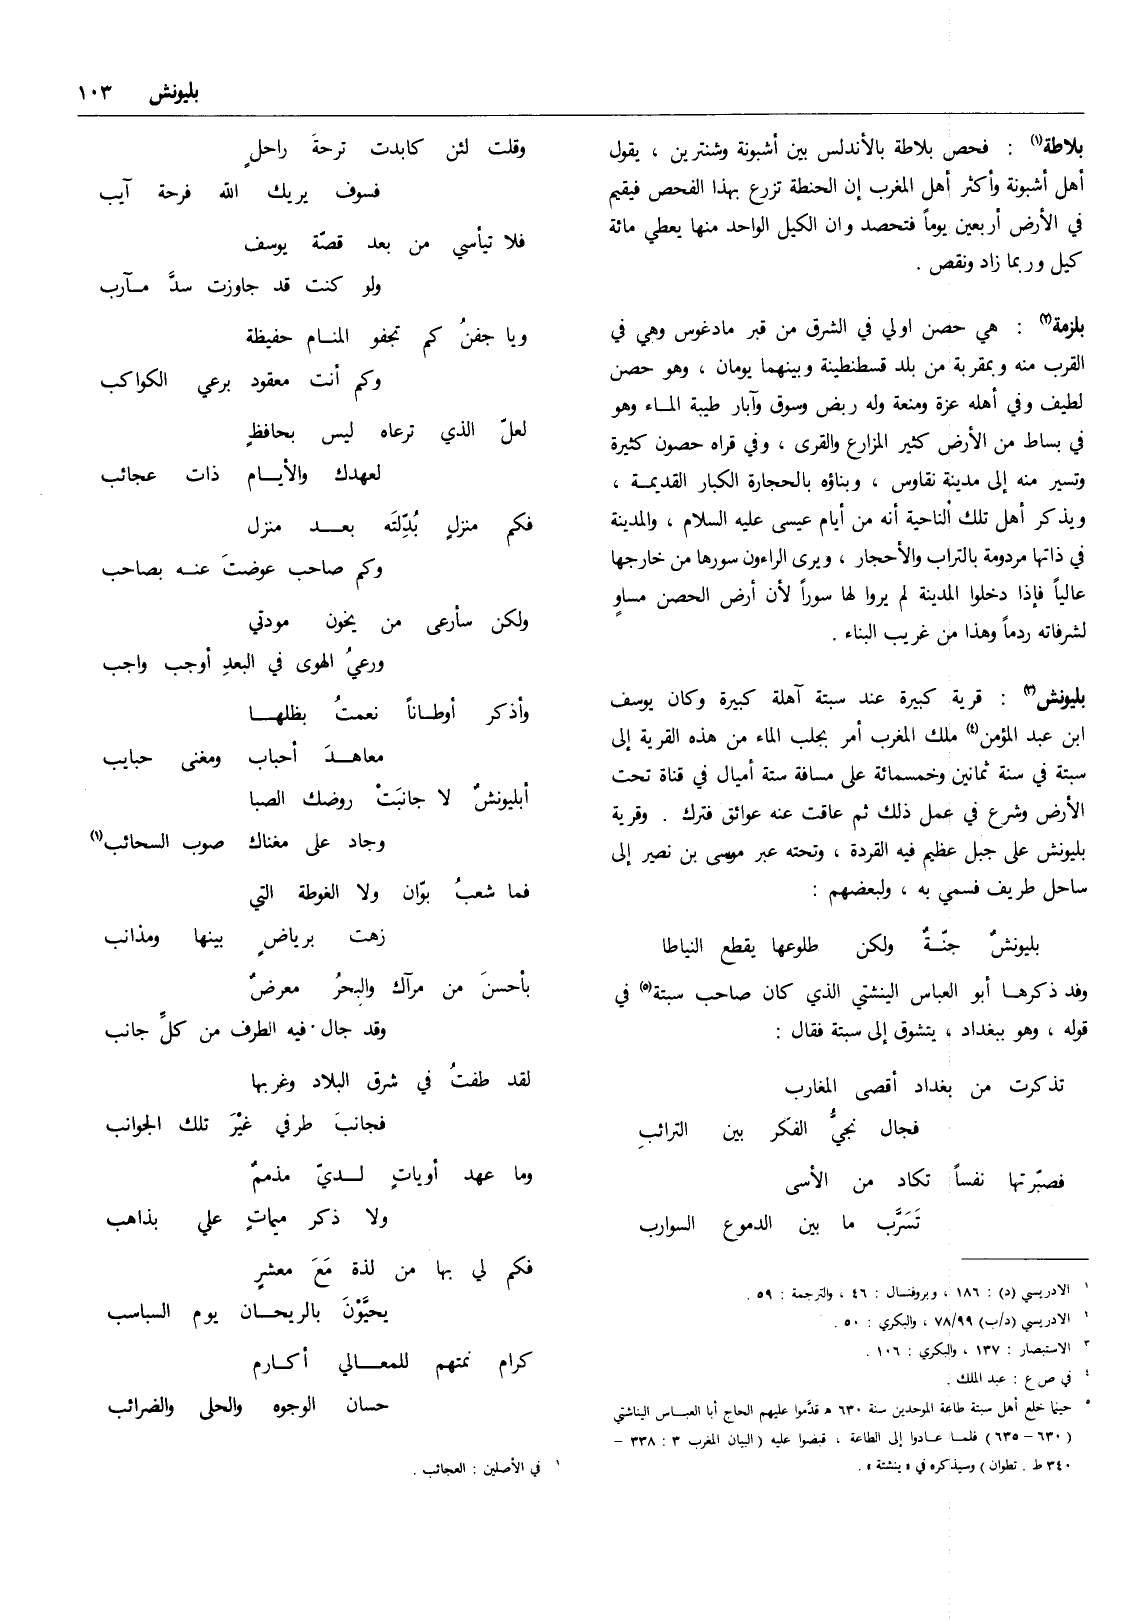 بليونش ١٠٣
بلاطة(١) : فحص بلاطة بالأندلس بين أشبونة وشنترين ، يقول
أهل أشبونة وأكثر أهل المغرب إن الحنطة تزرع بهذا الفحص فيقيم
في الأرض أربعين يوماً فتحصد وان الكيل الواحد منها يعطي مائة
كيل وربما زاد ونقص .
بلزمة(٢) : هي حصن اولي في الشرق من قبر مادغوس وهي في
القرب منه وبمقربة من بلد قسطنطينة وبينهما يومان ، وهو حصن
لطيف وفي أهله عزة ومنعة وله ربض وسوق وآبار طيبة المـاء وهو
في بساط من الأرض كثير المزارع والقرى ، وفي قراه حصون كثيرة
وتسير منه إلى مدينة نقاوس ، وبناؤه بالحجارة الكبار القديمـة ،
ويذكر أهل تلك الناحية أنه من أيام عيسى عليه السلام ، والمدينة
في ذاتها مردومة بالتراب والأحجار ، ويرى الراءون سورها من خارجها
عالياً فإذا دخلوا المدينة لم يروا لها سوراً لأن أرض الحصن مساوٍ
لشرفاته ردماً وهذا من غريب البناء .
بليونش(٣) : قرية كبيرة عند سبتة آهلة كبيرة وكان يوسف
ابن عبد المؤمن(٤) ملك المغرب أمر بجلب الماء من هذه القرية إلى
سبتة في سنة ثمانين وخمسمائة على مسافة ستة أميال في قناة تحت
الأرض وشرع في عمل ذلك ثم عاقت عنه عوائق فترك . وقرية
بليونش على جبل عظيم فيه القردة ، وتحته عبر موسى بن نصير إلى
ساحل طريف فسمي به ، ولبعضهم :
بليونشٌ جنّـةٌ ولكن طلوعها يقطع النياطا
وفد ذكرهـا أبو العباس الينشتي الذي كان صاحب سبتة(٥) في
قوله ، وهو ببغداد ، يتشوق إلى سبتة فقال :
تذكرت من بغداد أقصى المغارب
فجال نجيُّ الفكر بين الترائبِ
فصبّرتها نفساً تكاد من الأسى
تَسَرَّب ما بين الدموع السوارب
١ الادريسي (د) : ١٨٦ ، وبروفنسال : ٤٦ ، والترجمة : ٥٩ .
١ الادريسي (د/ب) ٧٨/٩٩ ، والبكري : ٥٠ .
٣ الاستبصار : ١٣٧ ، والبكري : ١٠٦ .
٤ في ص ع : عبد الملك .
٥ حينما خلع أهل سبتة طاعة الموحدين سنة ٦٣٠ ه قدّموا عليهم الحاج أبا العبـاس اليناشتي
( ٦٣٠ – ٦٣٥ ) فلمـا عـادوا إلى الطاعة ، قبضوا عليه ( البيان المغرب ٣ : ٣٣٨ –
٣٤٠ ط . تطوان ) وسيذكره في « ينشتة » .
وقلت لئن كابدت ترحةَ راحلٍ
فسوف يريك الله فرحة آيب
فلا تيأسي من بعد قصّة يوسف
ولو كنت قد جاوزت سدَّ مـآرب
ويا جفنُ كم تجفو المنـام حفيظة
وكم أنت معقود برعي الكواكب
لعلّ الذي ترعاه ليس بحافظٍ
لعهدك والأيـام ذات عجائب
فكم منزلٍ بُدِّلتَه بعـد منزل
وكم صاحب عوضتَ عنـه بصاحب
ولكن سأرعى من يخون مودتي
ورعيُ الهوى في البعدِ أوجب واجب
وأذكر أوطـاناً نعمتُ بظلهـا
معاهـدَ أحباب ومغنى حبايب
أبليونشٌ لا جانبَتْ روضك الصبا
وجاد على مغناك صوب السحائب(١)
فما شعبُ بوّان ولا الغوطة التي
زهت برياضٍ بينها ومذانب
بأحسنَ من مرآك والبحرُ معرضٌ
وقد جال فيه الطرف من كلِّ جانب
لقد طفتُ في شرق البلاد وغربها
فجانبَ طرفي غيْرَ تلك الجوانب
وما عهد أوياتٍ لـديّ مذممٌ
ولا ذكر ميماتٍ علي بذاهب
فكم لي بها من لذة مَعَ معشرٍ
يحيَّوْنَ بالريحـان يوم السباسب
كرام نمتهم للمعـالي أكـارم
حسان الوجوه والحلى والضرائب
١ في الأصلين : العجائب .